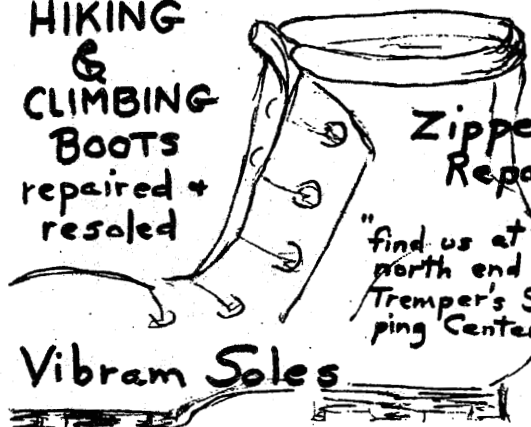 HIKING
&
CLIMBING
BOOTS
repaired +
resoled
Zippe
Repa
"find us at
north end
Tremper's S
ping Cente
Vibram Soles